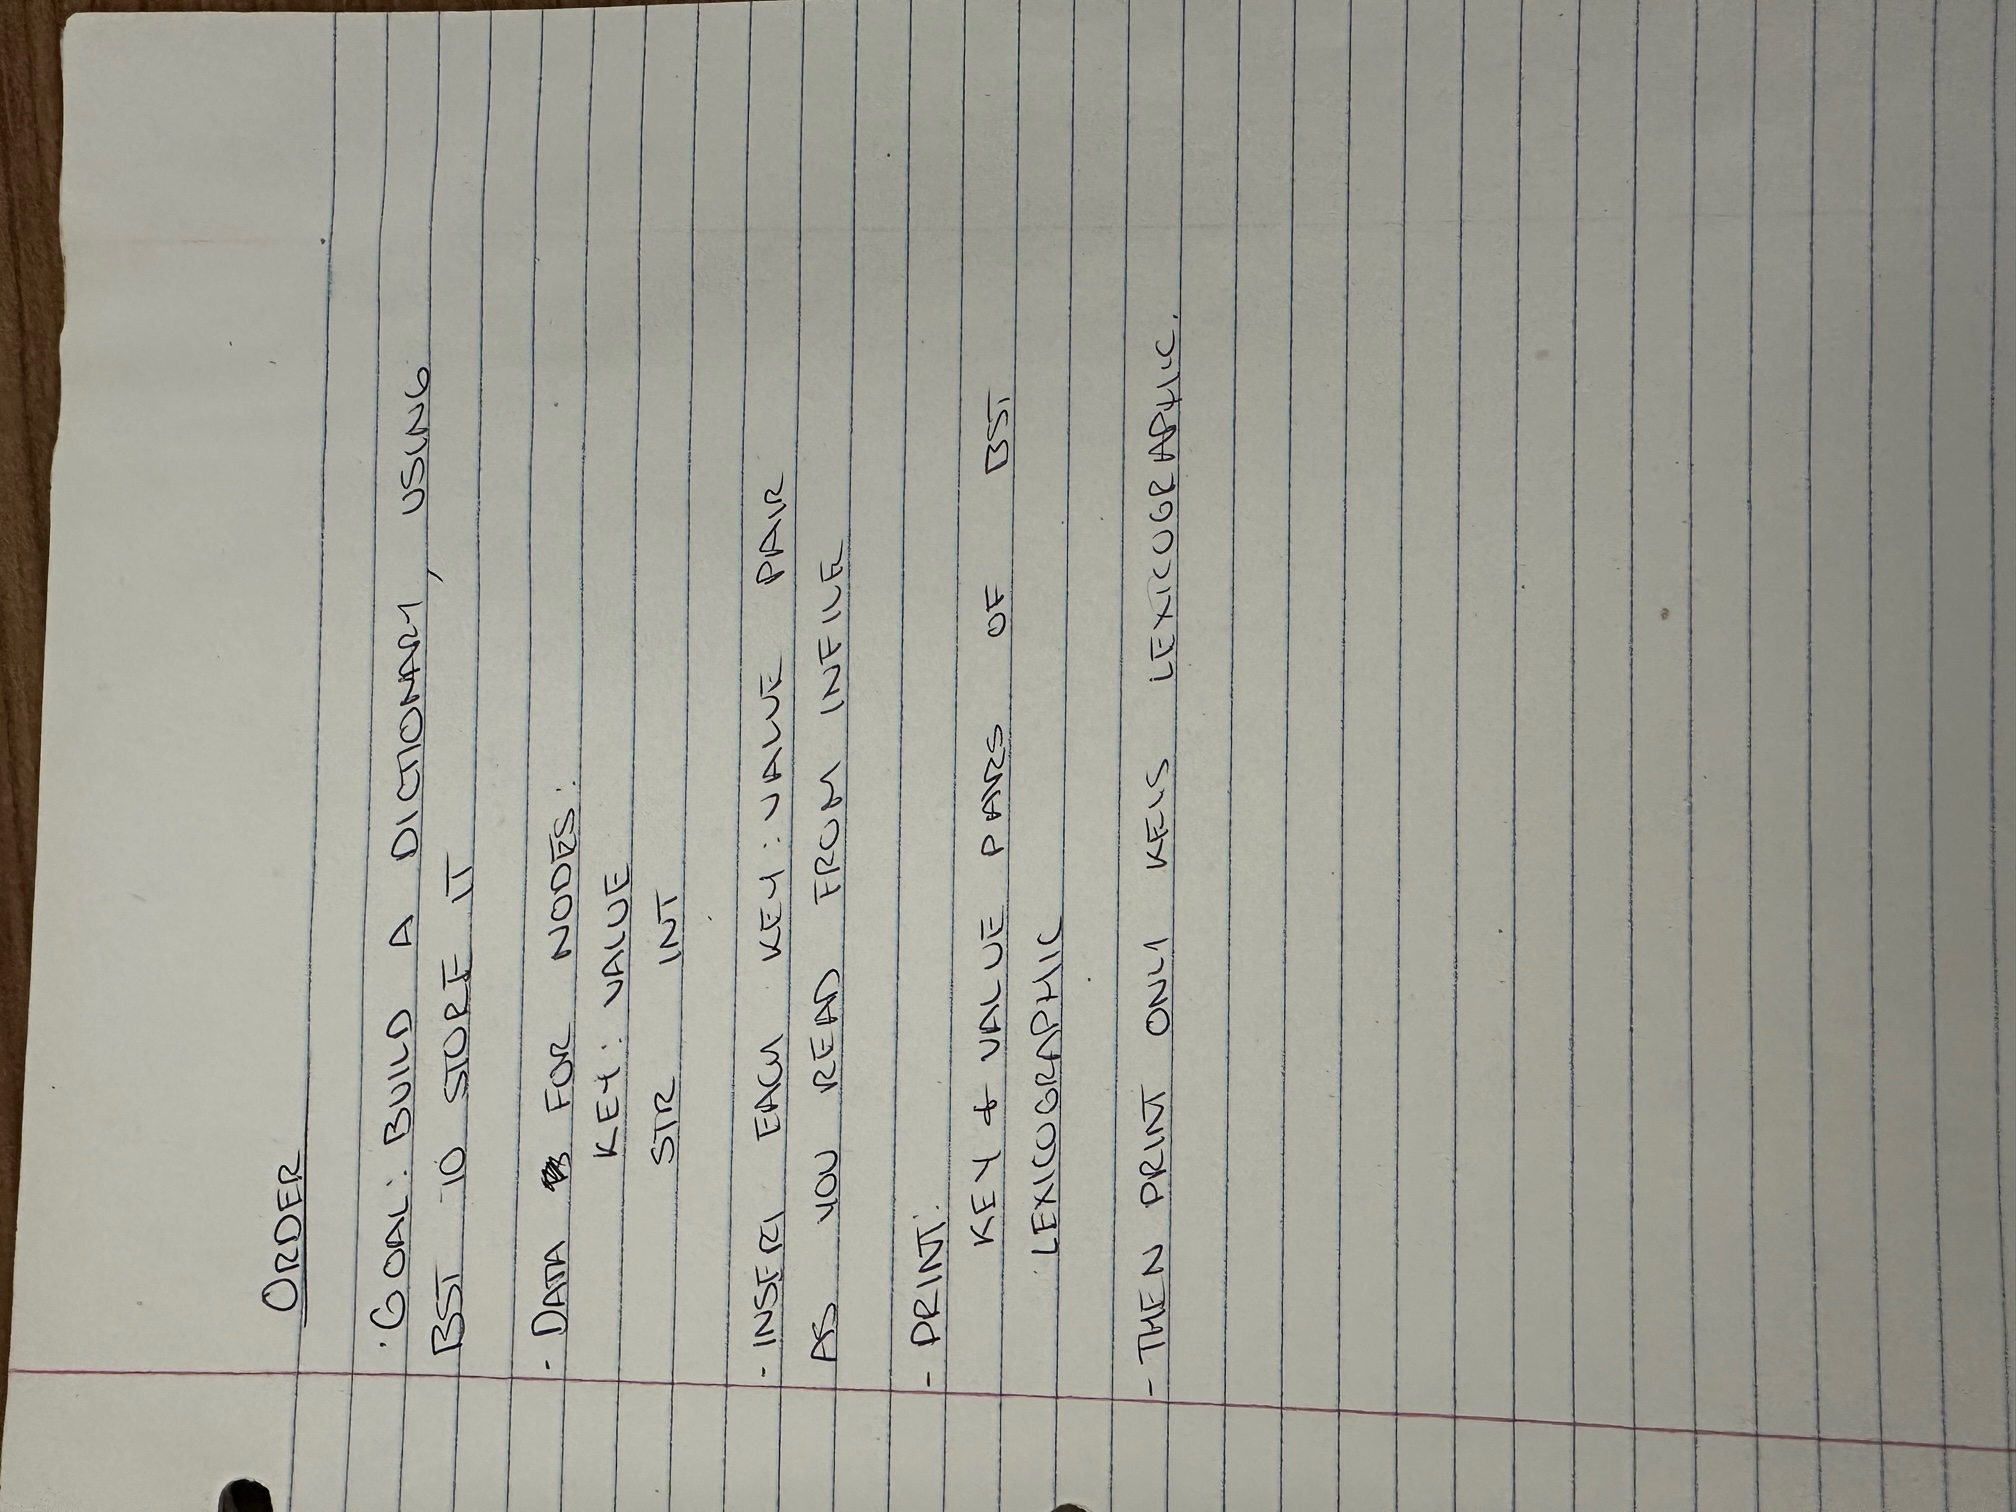 ORDER
· GOAL: BUILD A DICTIONARY, USING
BST TO STORE IT
- DATA FOR NODES:
KEY: VALUE
STR INT
- INSERT EACH KEY: VALUE PAIR
AS YOU READ FROM INFILE
- PRINT:
KEY & VALUE PAIRS OF BST
LEXICOGRAPHIC
- THEN PRINT ONLY KEYS LEXICOGRAPHIC.